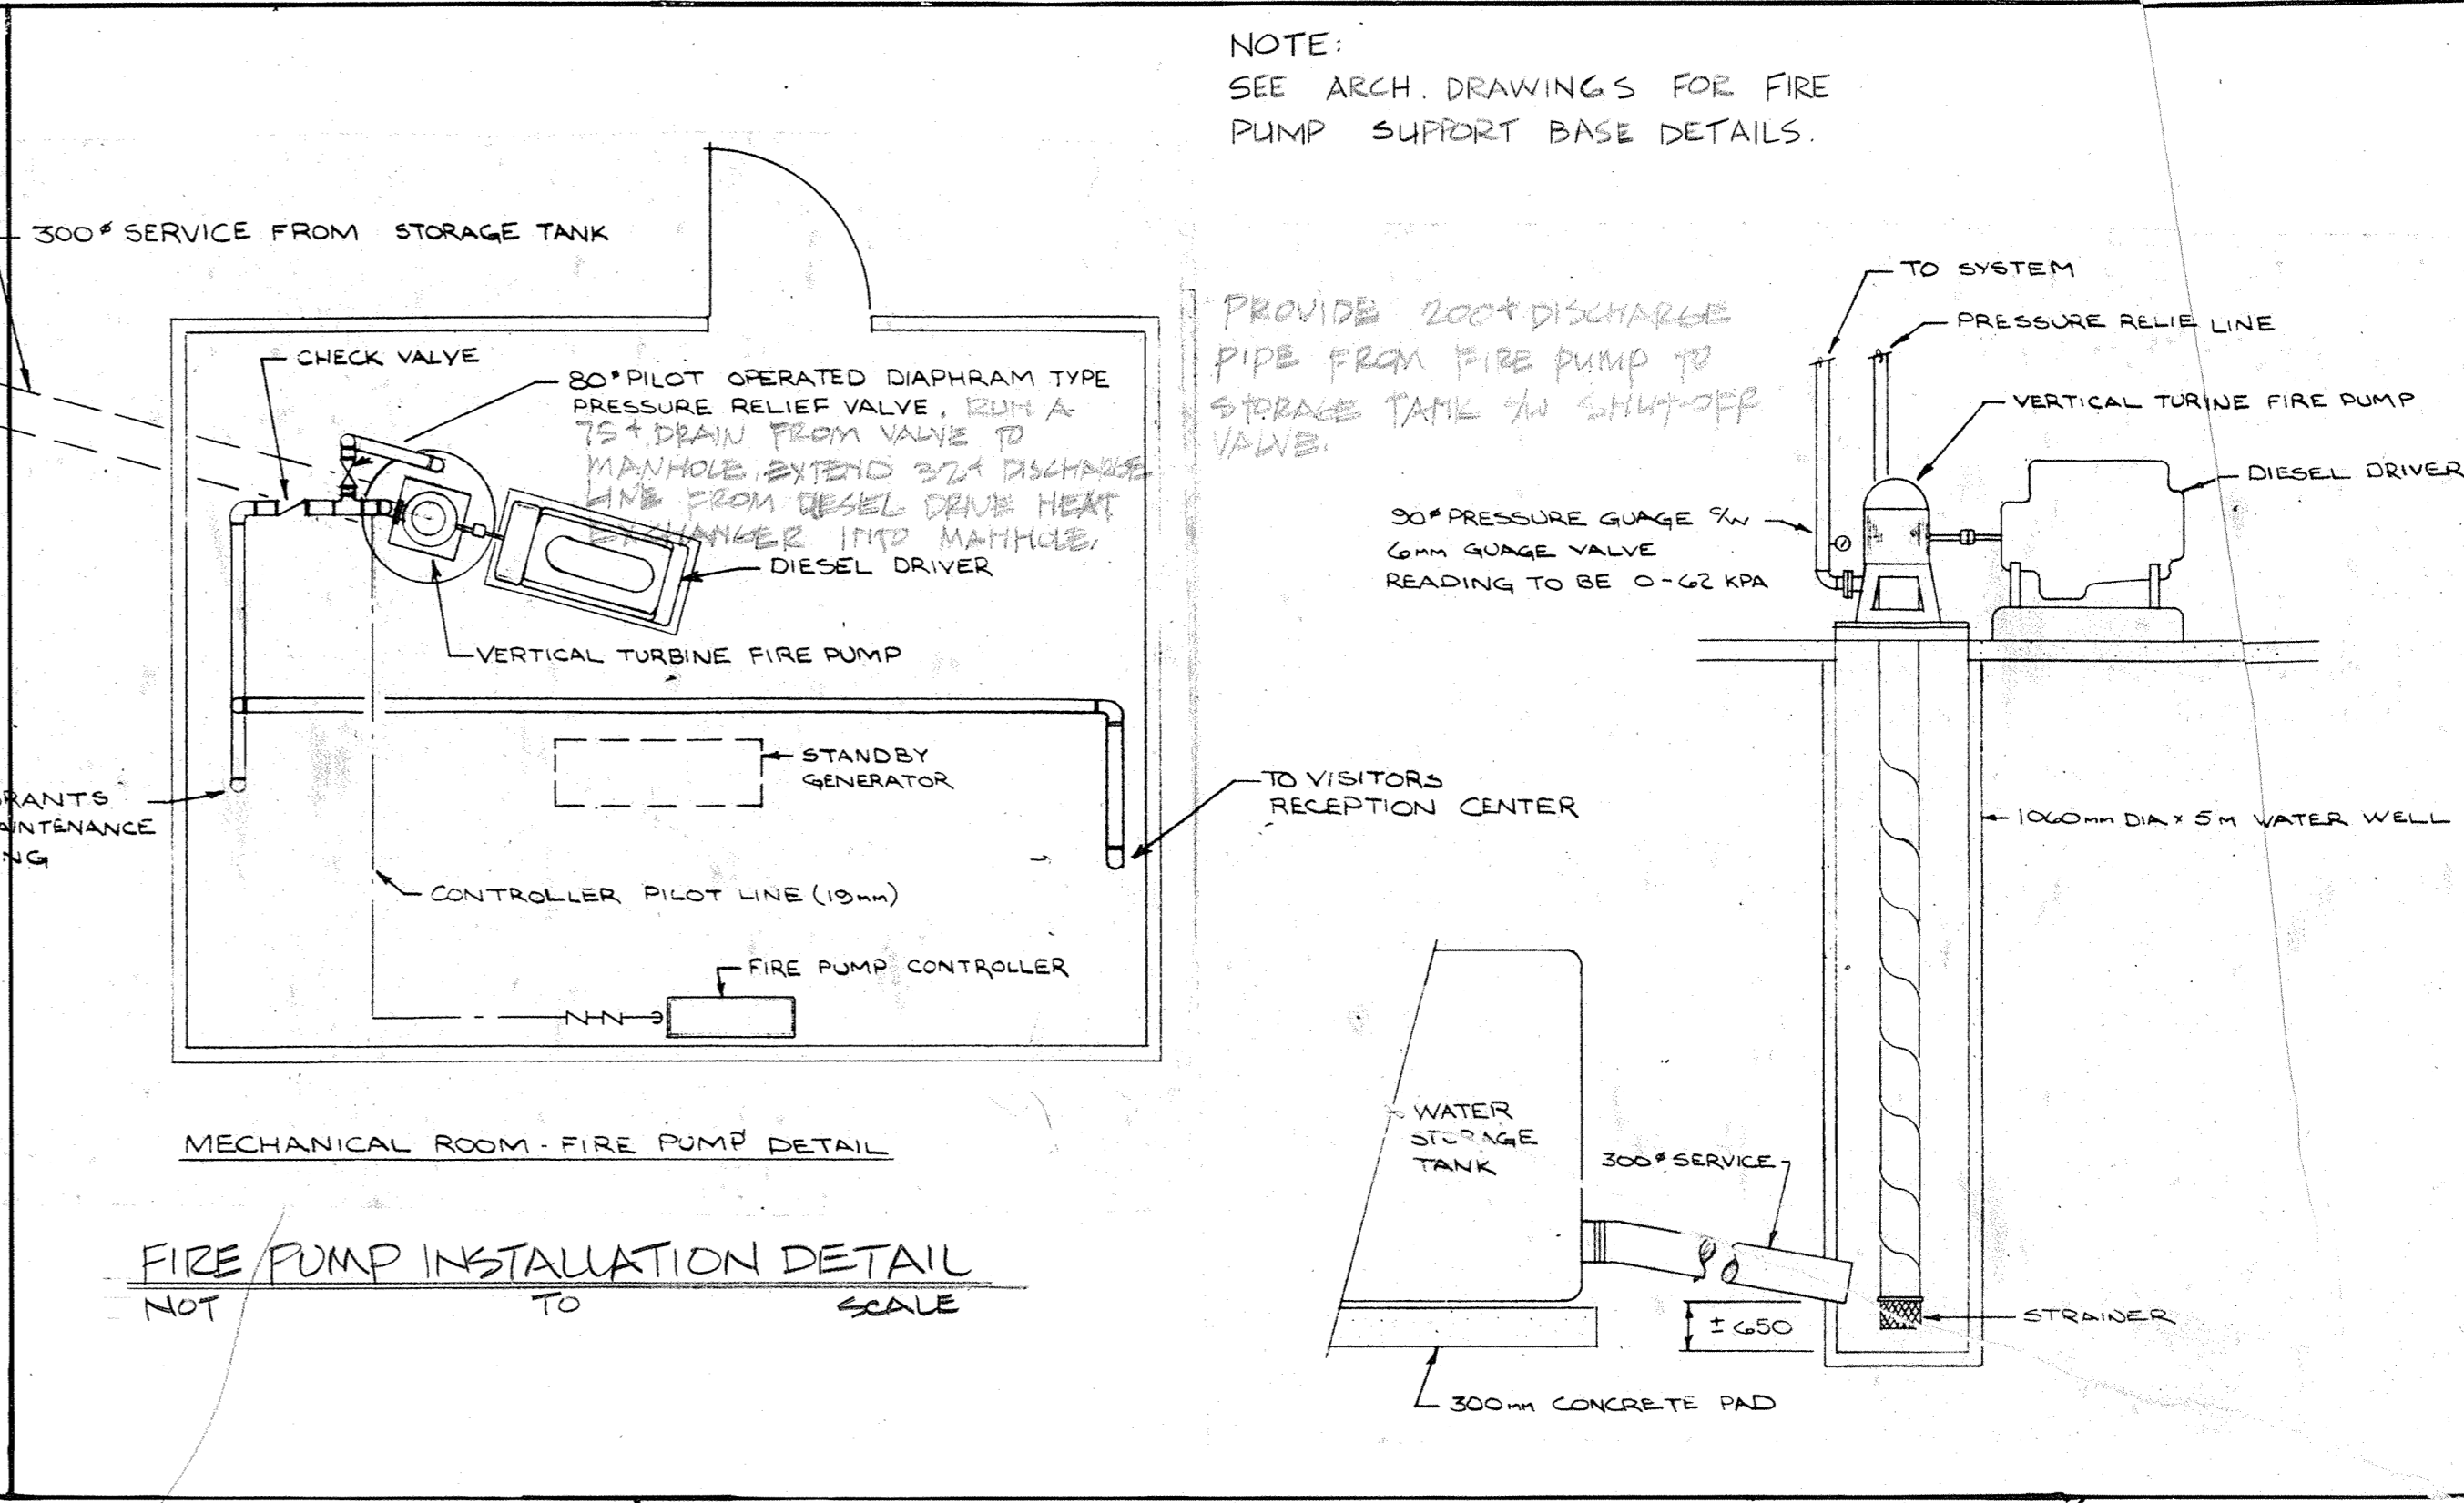 NOTE:
SEE ARCH. DRAWINGS FOR FIRE
PUMP SUPPORT BASE DETAILS.
300ø SERVICE FROM STORAGE TANK
CHECK VALVE
80ø PILOT OPERATED DIAPHRAM TYPE
PRESSURE RELIEF VALVE. RUN A
75ø DRAIN FROM VALVE TO
MANHOLE, EXTEND 32ø DISCHARGE
LINE FROM DIESEL DRIVE HEAT
EXCHANGER INTO MANHOLE.
DIESEL DRIVER
VERTICAL TURBINE FIRE PUMP
STANDBY
GENERATOR
RANTS
AINTENANCE
NG
TO VISITORS
RECEPTION CENTER
CONTROLLER PILOT LINE (19mm)
FIRE PUMP CONTROLLER
MECHANICAL ROOM - FIRE PUMP DETAIL
FIRE PUMP INSTALLATION DETAIL
NOT TO SCALE
PROVIDE 200ø DISCHARGE
PIPE FROM FIRE PUMP TO
STORAGE TANK C/W SHUT-OFF
VALVE.
TO SYSTEM
PRESSURE RELIE LINE
VERTICAL TURINE FIRE PUMP
DIESEL DRIVER
90ø PRESSURE GUAGE C/W
6mm GUAGE VALVE
READING TO BE 0-62 KPA
1060mm DIA x 5M WATER WELL
WATER
STORAGE
TANK
300ø SERVICE
± 650
STRAINER
300mm CONCRETE PAD